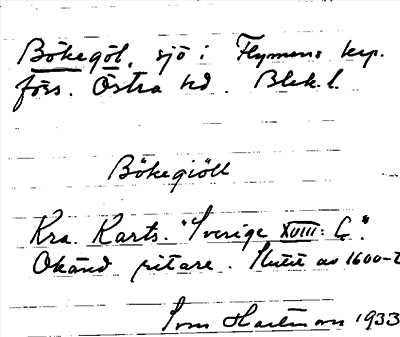 Bökegöl, sjö i Flymens kap.
förs. Östra hd. Blek. l.
Bökegiöll
Kra. Karts. "Sverige XVIII: C".
Okänd ritare. Slutet av 1600-t
Sven Hartman 1933